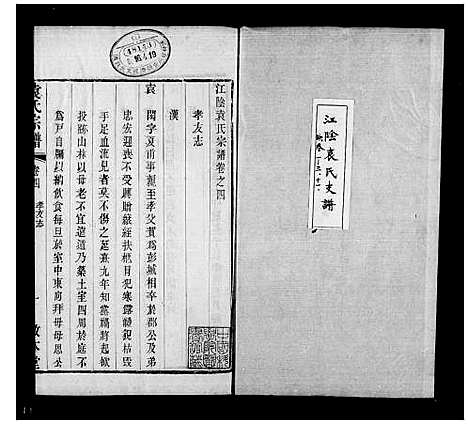 江陰袁氏支譜
江陰袁氏宗譜卷之四
孝友志
漢
袁閎字夏甫事親至孝父賀為彭城相卒於郡公及弟
忠宏迎喪不受賻贈縗絰扶柩冒犯寒露體貌枯毀
手足血流見者莫不傷之延熹九年知黨禍將起欲
投跡山林以母老不宜遠遁乃築土室四周於庭
為戶自牖以納飲食每旦於室中東向拜母母思公
袁氏宗譜
卷四
孝友志
一